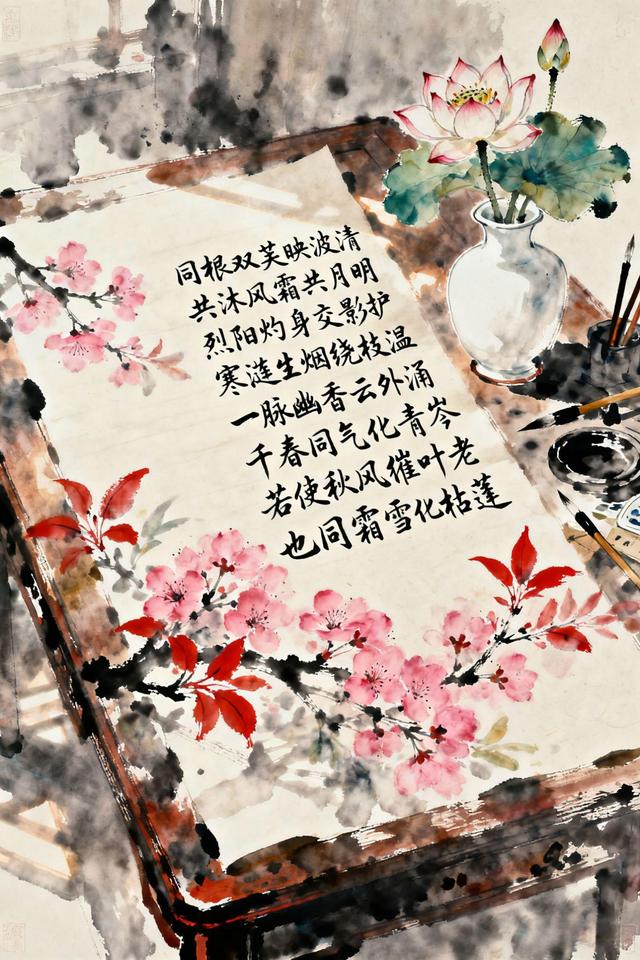 同根双芙映波清
共沐风霜共月明
烈阳灼身交影护
寒涟生烟绕枝温
一脉幽香云外涌
千春同气化青岑
若使秋风催叶老
也同霜雪化枯莲